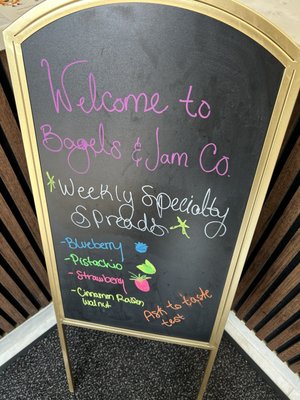 Welcome to
Bagels & Jam Co.
Weekly Specialty
Spreads
-Blueberry
-Pistachio
-Strawberry
-Cinnamon Raisin
Walnut
Ask to taste
test